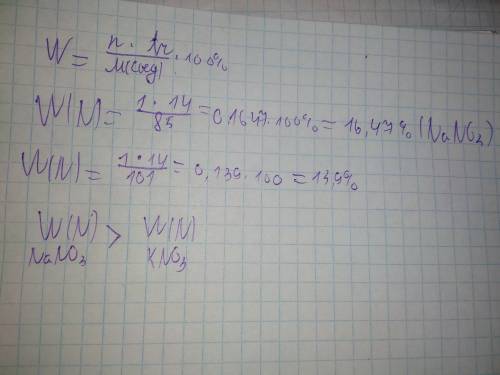 W = n · Ar / M(соед) · 100%
W(N) = 1 · 14 / 85 = 0,1647 · 100% = 16,47% (NaNO3)
W(N) = 1 · 14 / 101 = 0,139 · 100 = 13,9%
W(N) > W(N)
NaNO3 KNO3